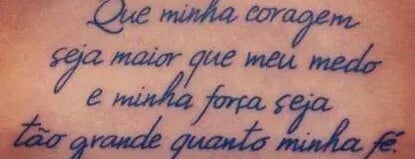 Que minha coragem
seja maior que meu medo
e minha força seja
tão grande quanto minha fé.